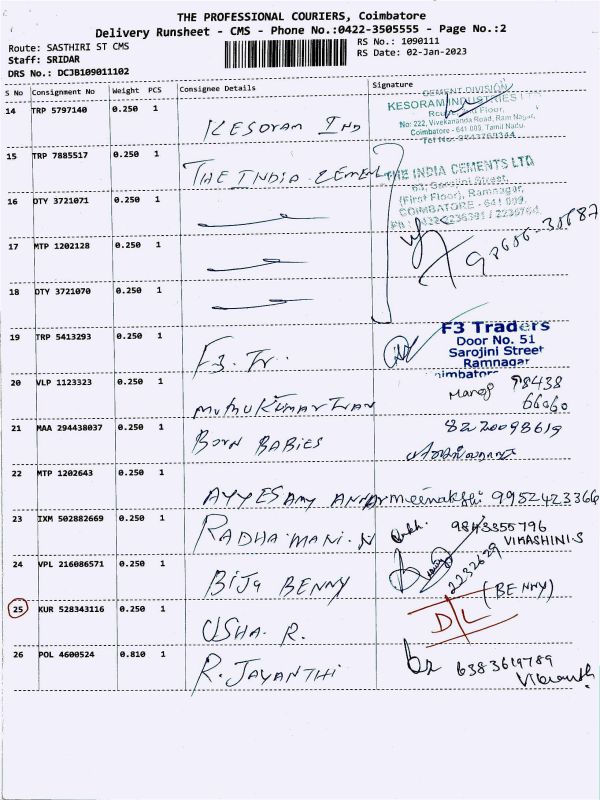 THE PROFESSIONAL COURIERS, Coimbatore
Delivery Runsheet - CMS - Phone No.:0422-3505555 - Page No.:2
Route: SASTHIRI ST CMS
Staff: SRIDAR
DRS No.: DCJB109011102
RS No.: 1090111
RS Date: 02-Jan-2023
S No Consignment No Weight PCS Consignee Details Signature
14 TRP 5797140 0.250 1 KESORAM IND
CEMENT DIVISION
KESORAM INDUSTRIES LTD
No: 222, Vivekananda Road, Ram Nagar
Coimbatore - 641 009, Tamil Nadu
15 TRP 7885517 0.250 1 THE INDIA CEMENT
THE INDIA CEMENTS LTD
63, Sarojini Street,
(First Floor), Ramnagar,
COIMBATORE - 641 009.
16 DTY 3721071 0.250 1
17 MTP 1202128 0.250 1
18 DTY 3721070 0.250 1
19 TRP 5413293 0.250 1 F3. Tr..
F3 Traders
Door No. 51
Sarojini Street
Ramnagar
20 VLP 1123323 0.250 1 MUTHUKUMAR Manoj 98438
66060
21 MAA 294438037 0.250 1 BORN BABIES 8220098619
22 MTP 1202643 0.250 1 AYYESAMY meenakshi 9952423366
23 IXM 502882669 0.250 1 RADHA MANI. N 9843355796
VIKASHINI.S
24 VPL 216086571 0.250 1 BIJU BENNY 2232629
(BENNY)
25 KUR 528343116 0.250 1 USHA. R. D/L
26 POL 4600524 0.810 1 R. JAYANTHI 6383619789